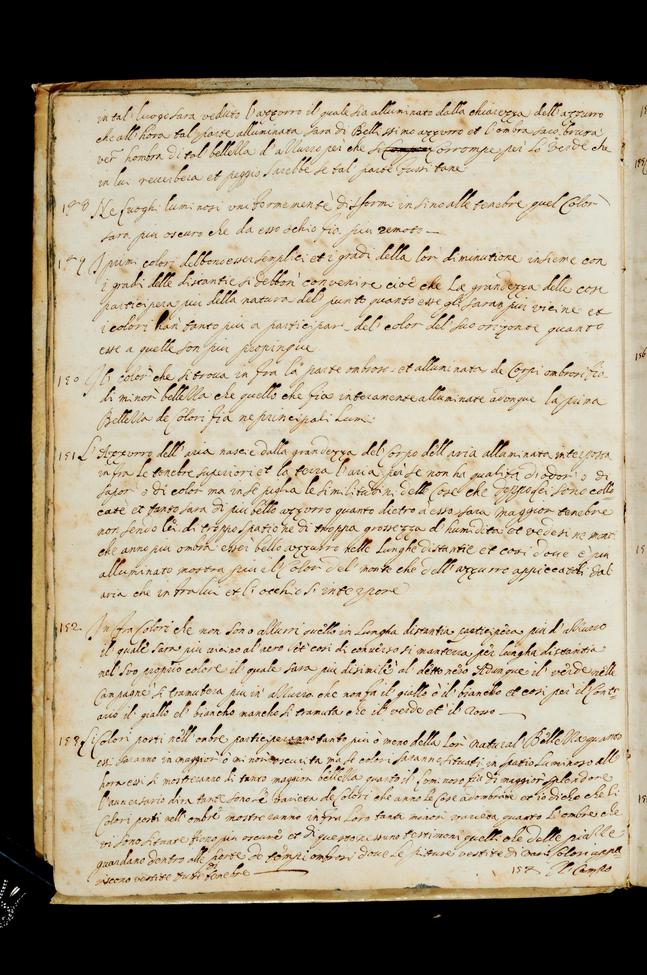 in tal luogo sara veduto l'azzurro il quale sia alluminato dalla chiarezza dell'azzurro
che all hora tal parte alluminata sara di Bellissimo azzurro et l'ombra sara brutta
hombra di tal bellezza d'alluzro per che si corrompe per lo verde che
in lui reverbera et peggio sarebbe se tal parte fussi tane
148 Ne Luoghi luminosi uniformemente difformi insino alle tenebre quel Color
sara piu oscuro che da esso ochio fia piu remoto
149 I primi colori debbono esser semplici et i gradi della lor diminutione insieme con
i gradi delle distantie si debbon convenire cioè che La grandezza delle cose
participera piu della natura del punto quanto esse gli saran piu vicine et
i colori han tanto piu a participar del color del suo orizonte quanto
esse a quelle son piu propinque
150 Il color che si trova in fra la parte ombrosa et alluminata de Corpi ombrosi fia
di minor bellezza che quello che fia interamente alluminato adonque la prima
Bellezza de Colori fia ne principali Lumi
151 L'Azzurro dell'aria nasce dalla grandezza del Corpo dell'aria alluminata interposta
infra le tenebre superiori et la terra l'aria per se non ha qualita di odori o di
sapor o di color ma in se piglia le similitudini delle Cose che doppo lei sono collo
cate et tanto sara di piu bello azzurro quanto dietro a essa sara maggior tenebre
non sendo lei di troppo spatio ne di troppa grossezza d humidita et vedesi ne monti
che anno piu ombra esser bello azzurro nelle lunghe distantie et cosi dove è piu
alluminato mostra piu il Color del monte che dell'azzurro appiccatoli dal
aria che infra lui et l'occhio si interpone
152 Infra Colori che non sono allurri quello in Lungha distantia participera piu d'alluzro
il quale sara piu vicino al nero et cosi di converso si mantera per lungha distantia
nel suo proprio colore il quale sara piu disimile al detto nero Adunque il verde nelle
Campagne si tramutera piu in alluzro che non fa il giallo ò il biancho et cosi per il Contr
ario il giallo el biancho mancho si tramuta che il verde et il rosso
153 Li Colori posti nell'ombre participeranno tanto piu ò meno della Lor natural Bellezza quanto
essi saranno in maggior ò minor oscurita ma se colori saranno situati in spatio luminoso all
hora essi si mostreranno di tanto maggior bellezza quanto il luminoso fia di maggior splendore
l'aversario dira tante sono le varieta de Colori che anno le Cose adombrate et io dicho che li
Colori posti nell'ombre mostreranno infra Loro tanta minor varieta quanto le ombre che
vi sono situate fieno piu oscure et di questo ne sono testimoni quelli che delle piazze
guardano dentro alle porte de tempi ombrosi dove le pitture vestite di vari Colori appa
riscono vestite tutte di tenebre
154 Il Campo